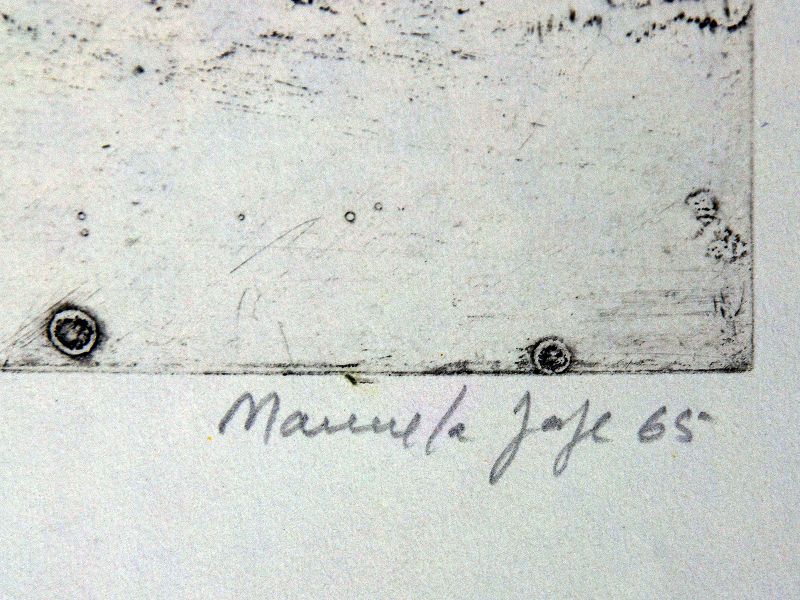 Manuela Jose 65